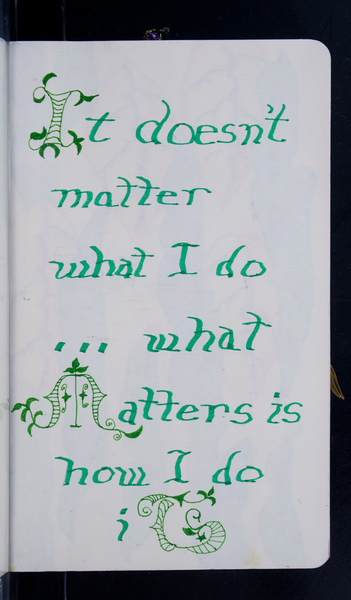 It doesn't
matter
what I do
... what
Matters is
how I do
iT